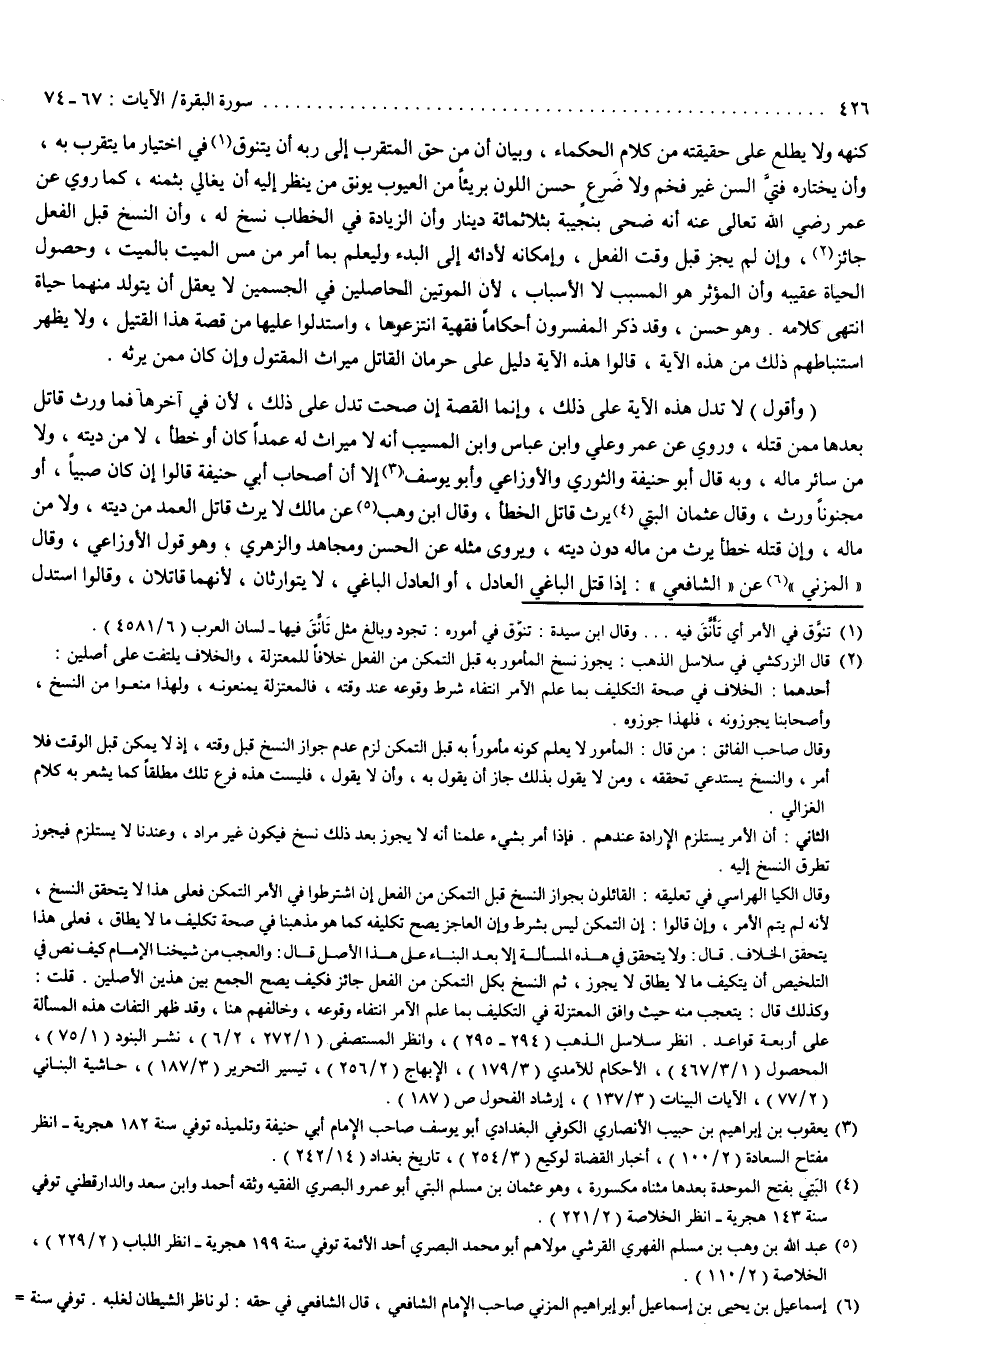 ٤٢٦ ............................................................ سورة البقرة/ الآيات : ٦٧ ـ ٧٤
كنهه ولا يطلع على حقيقته من كلام الحكماء ، وبيان أن من حق المتقرب إلى ربه أن يتنوق(١) في اختيار ما يتقرب به ،
وأن يختاره فتيَّ السن غير فخم ولا ضَرِعٍ حسن اللون بريئاً من العيوب يونق من ينظر إليه أن يغالي بثمنه ، كما روي عن
عمر رضي الله تعالى عنه أنه ضحى بنجيبة بثلاثمائة دينار وأن الزيادة في الخطاب نسخ له ، وأن النسخ قبل الفعل
جائز(٢) ، وإن لم يجز قبل وقت الفعل ، وإمكانه لأدائه إلى البدء وليعلم بما أمر من مس الميت بالميت ، وحصول
الحياة عقيبه وأن المؤثر هو المسبب لا الأسباب ، لأن الموتين الحاصلين في الجسمين لا يعقل أن يتولد منهما حياة
انتهى كلامه . وهو حسن ، وقد ذكر المفسرون أحكاماً فقهية انتزعوها ، واستدلوا عليها من قصة هذا القتيل ، ولا يظهر
استنباطهم ذلك من هذه الآية ، قالوا هذه الآية دليل على حرمان القاتل ميراث المقتول وإن كان ممن يرثه .
( وأقول ) لا تدل هذه الآية على ذلك ، وإنما القصة إن صحت تدل على ذلك ، لأن في آخرها فما ورث قاتل
بعدها ممن قتله ، وروي عن عمر وعلي وابن عباس وابن المسيب أنه لا ميراث له عمداً كان أو خطأ ، لا من ديته ، ولا
من سائر ماله ، وبه قال أبو حنيفة والثوري والأوزاعي وأبو يوسف(٣) إلا أن أصحاب أبي حنيفة قالوا إن كان صبياً ، أو
مجنوناً ورث ، وقال عثمان البتي (٤) يرث قاتل الخطأ ، وقال ابن وهب(٥) عن مالك لا يرث قاتل العمد من ديته ، ولا من
ماله ، وإن قتله خطأ يرث من ماله دون ديته ، ويروى مثله عن الحسن ومجاهد والزهري ، وهو قول الأوزاعي ، وقال
« المزني »(٦) عن « الشافعي » : إذا قتل الباغي العادل ، أو العادل الباغي ، لا يتوارثان ، لأنهما قاتلان ، وقالوا استدل
(١) تنوَّق في الأمر أي تَأَنَّقَ فيه ... وقال ابن سيدة : تنوّق في أموره : تجود وبالغ مثل تَأنَّقَ فيها ـ لسان العرب ( ٤٥٨١/٦ ) .
(٢) قال الزركشي في سلاسل الذهب : يجوز نسخ المأمور به قبل التمكن من الفعل خلافاً للمعتزلة ، والخلاف يلتفت على أصلين :
أحدهما : الخلاف في صحة التكليف بما علم الآمر انتفاء شرط وقوعه عند وقته ، فالمعتزلة يمنعونه ، ولهذا منعوا من النسخ ،
وأصحابنا يجوزونه ، فلهذا جوزوه .
وقال صاحب الفائق : من قال : المأمور لا يعلم كونه مأموراً به قبل التمكن لزم عدم جواز النسخ قبل وقته ، إذ لا يمكن قبل الوقت فلا
أمر ، والنسخ يستدعي تحققه ، ومن لا يقول بذلك جاز أن يقول به ، وأن لا يقول ، فليست هذه فرع تلك مطلقاً كما يشعر به كلام
الغزالي .
الثاني : أن الأمر يستلزم الإرادة عندهم . فإذا أمر بشيء علمنا أنه لا يجوز بعد ذلك نسخ فيكون غير مراد ، وعندنا لا يستلزم فيجوز
تطرق النسخ إليه .
وقال الكيا الهراسي في تعليقه : القائلون بجواز النسخ قبل التمكن من الفعل إن اشترطوا في الأمر التمكن فعلى هذا لا يتحقق النسخ ،
لأنه لم يتم الأمر ، وإن قالوا : إن التمكن ليس بشرط وإن العاجز يصح تكليفه كما هو مذهبنا في صحة تكليف ما لا يطاق ، فعلى هذا
يتحقق الخلاف . قال : ولا يتحقق في هذه المسألة إلا بعد البناء على هذا الأصل قال : والعجب من شيخنا الإمام كيف نص في
التلخيص أن يتكيف ما لا يطاق لا يجوز ، ثم النسخ بكل التمكن من الفعل جائز فكيف يصح الجمع بين هذين الأصلين . قلت :
وكذلك قال : يتعجب منه حيث وافق المعتزلة في التكليف بما علم الآمر انتفاء وقوعه ، وخالفهم هنا ، وقد ظهر التفات هذه المسألة
على أربعة قواعد . انظر سلاسل الذهب ( ٢٩٤ ـ ٢٩٥ ) ، وانظر المستصفى ( ٢٧٢/١ ، ٦/٢ ) ، نشر البنود ( ٧٥/١ ) ،
المحصول ( ٤٦٧/٣/١ ) ، الأحكام للآمدي ( ١٧٩/٣ ) ، الإبهاج ( ٢٥٦/٢ ) ، تيسير التحرير ( ١٨٧/٣ ) ، حاشية البناني
( ٧٧/٢ ) ، الآيات البينات ( ١٣٧/٣ ) ، إرشاد الفحول ص ( ١٨٧ ) .
(٣) يعقوب بن إبراهيم بن حبيب الأنصاري الكوفي البغدادي أبو يوسف صاحب الإمام أبي حنيفة وتلميذه توفي سنة ١٨٢ هجرية ـ انظر
مفتاح السعادة ( ١٠٠/٢ ) ، أخبار القضاة لوكيع ( ٢٥٤/٣ ) ، تاريخ بغداد ( ٢٤٢/١٤ ) .
(٤) البَتِي بفتح الموحدة بعدها مثناه مكسورة ، وهو عثمان بن مسلم البتي أبو عمرو البصري الفقيه وثقه أحمد وابن سعد والدارقطني توفي
سنة ١٤٣ هجرية ـ انظر الخلاصة ( ٢٢١/٢ ) .
(٥) عبد الله بن وهب بن مسلم الفهري القرشي مولاهم أبو محمد البصري أحد الأئمة توفي سنة ١٩٩ هجرية ـ انظر اللباب ( ٢٢٩/٢ ) ،
الخلاصة ( ١١٠/٢ ) .
(٦) إسماعيل بن يحيى بن إسماعيل أبو إبراهيم المزني صاحب الإمام الشافعي ، قال الشافعي في حقه : لو ناظر الشيطان لغلبه . توفي سنة =